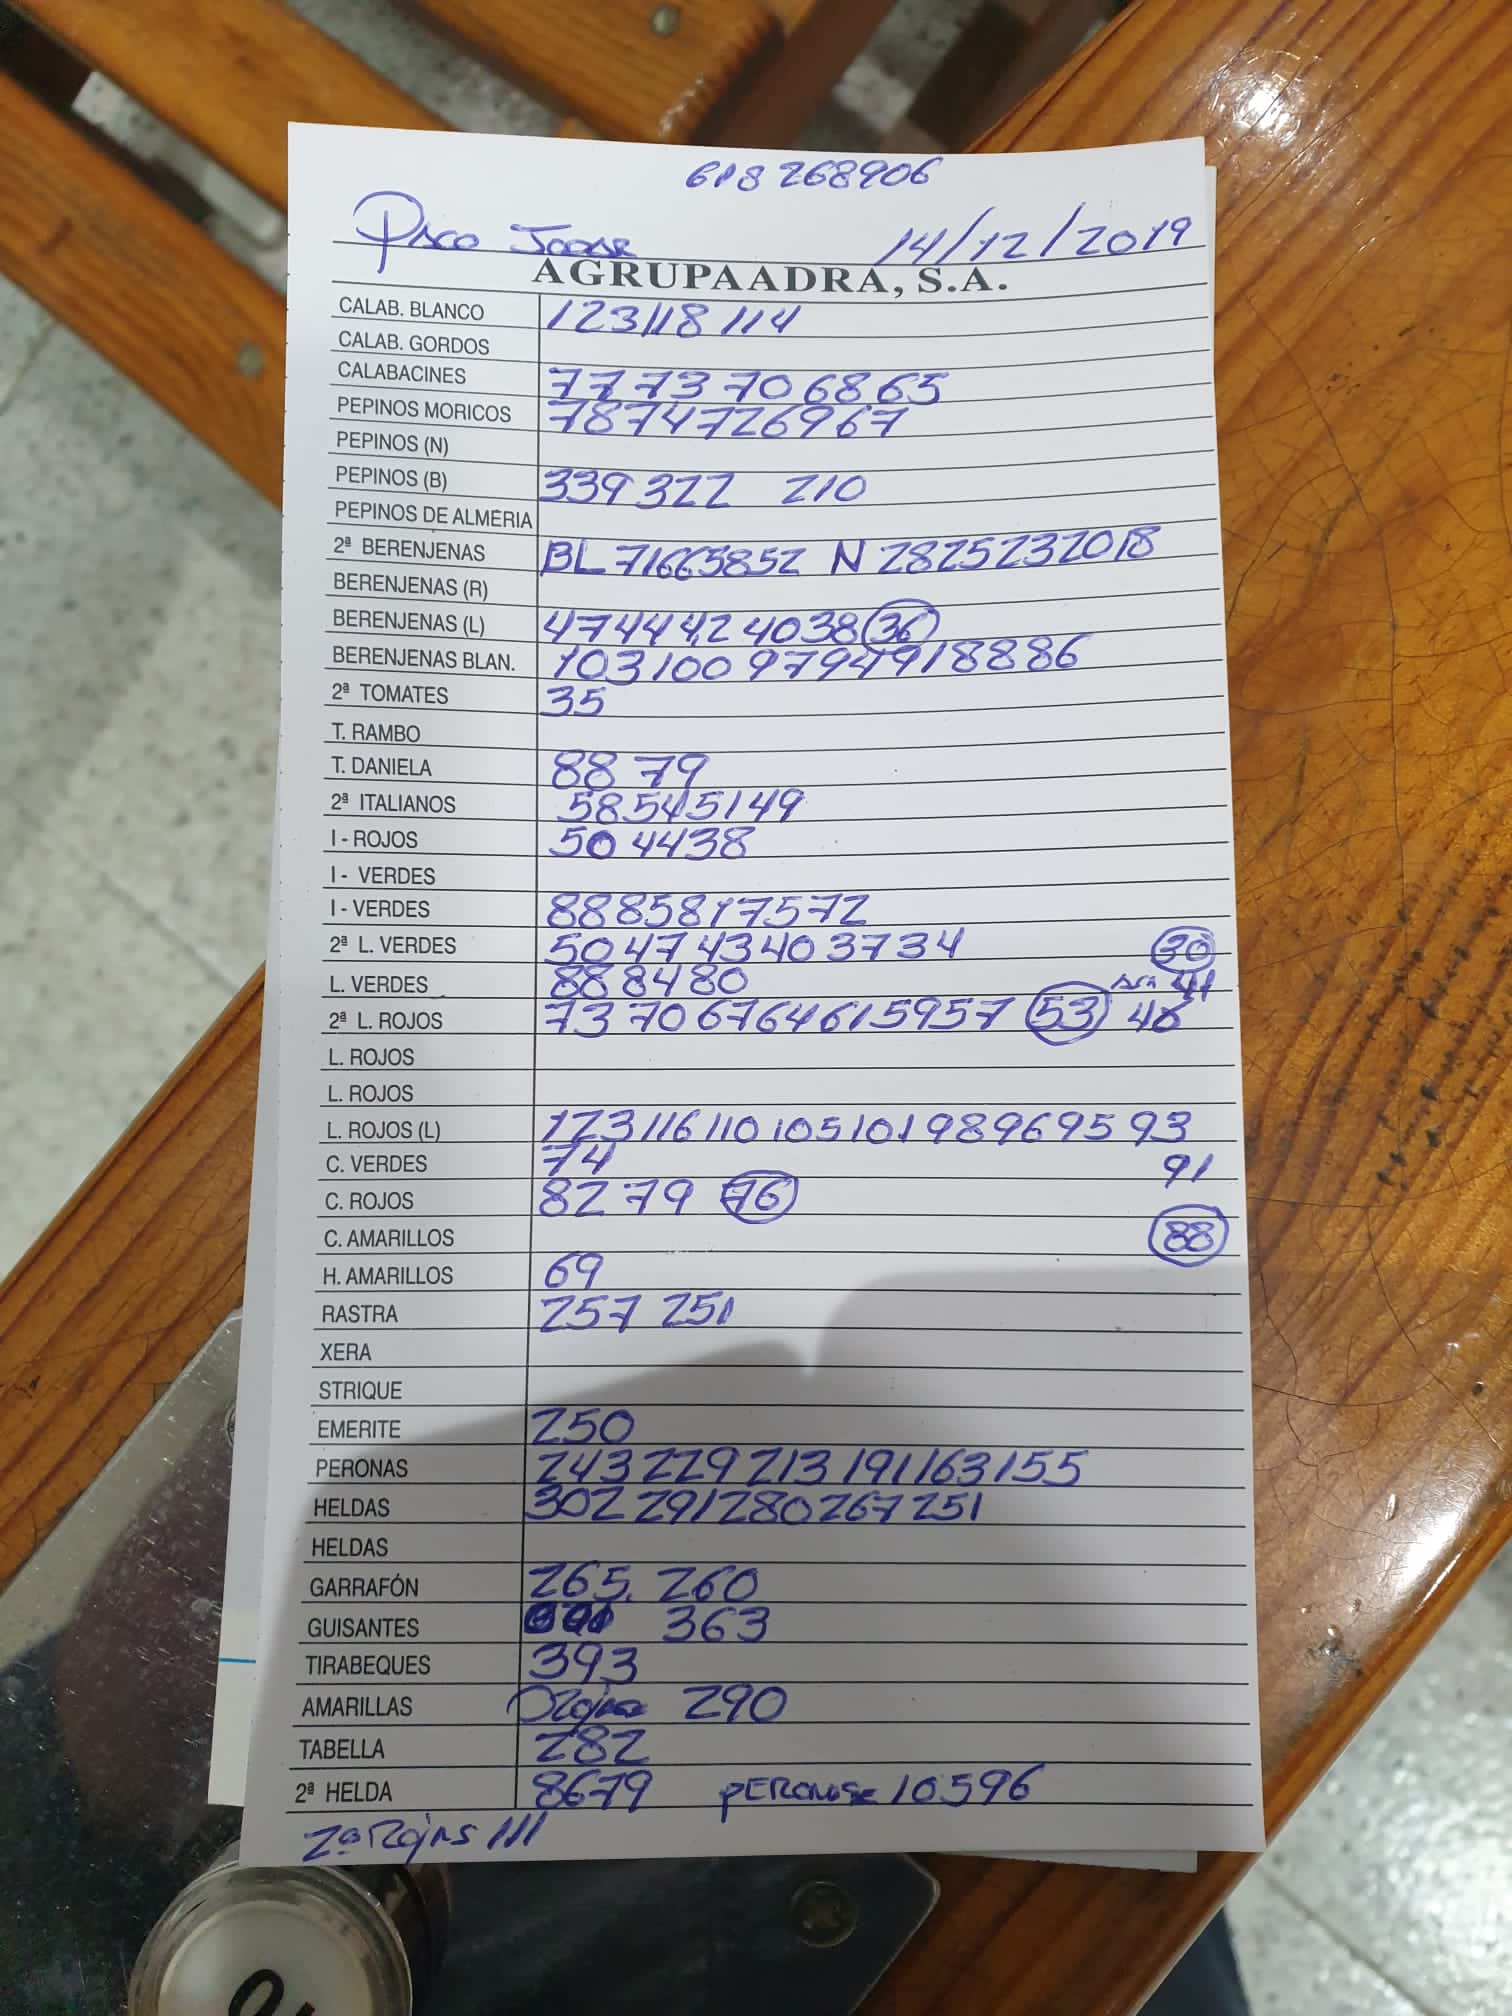 618 268906
PACO JODAR 14/12/2019
AGRUPAADRA, S.A.
CALAB. BLANCO 123 118 114
CALAB. GORDOS
CALABACINES 77 73 70 68 65
PEPINOS MORICOS 78 74 72 69 67
PEPINOS (N)
PEPINOS (B) 339 322 210
PEPINOS DE ALMERIA
2ª BERENJENAS BL 71 66 58 52 N 28 25 23 20 18
BERENJENAS (R)
BERENJENAS (L) 47 44 42 40 38 36
BERENJENAS BLAN. 103 100 97 94 91 88 86
2ª TOMATES 35
T. RAMBO
T. DANIELA 88 79
2ª ITALIANOS 58 54 51 49
I - ROJOS 50 44 38
I - VERDES
I - VERDES 88 85 81 75 72
2ª L. VERDES 50 47 43 40 37 34 30
L. VERDES 88 84 80 41
2ª L. ROJOS 73 70 67 64 61 59 57 53 48
L. ROJOS
L. ROJOS
L. ROJOS (L) 123 116 110 105 101 98 96 95 93
C. VERDES 74 91
C. ROJOS 82 79 76
C. AMARILLOS 88
H. AMARILLOS 69
RASTRA 257 251
XERA
STRIQUE
EMERITE 250
PERONAS 243 229 213 191 163 155
HELDAS 302 291 280 267 251
HELDAS
GARRAFÓN 265. 260
GUISANTES 363
TIRABEQUES 393
AMARILLAS 290
TABELLA 282
2ª HELDA 86 79 105 96
2ª Rojas 111